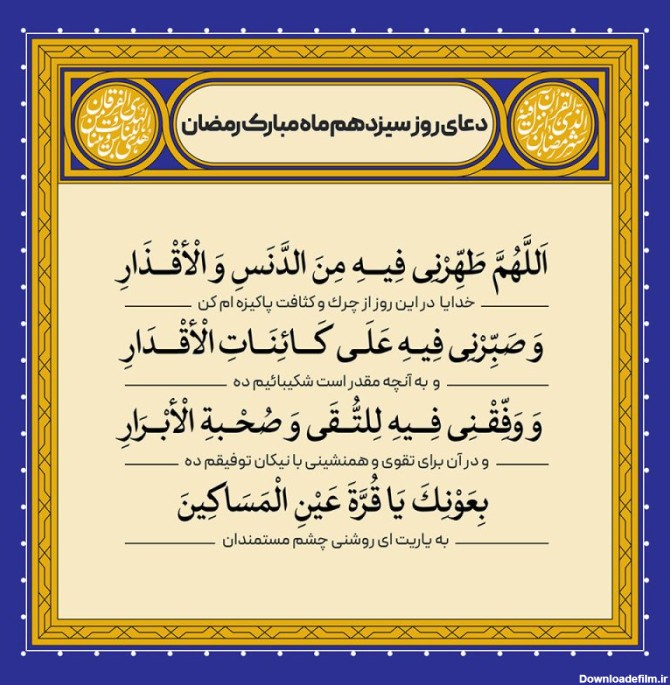 دعای روز سیزدهم ماه مبارک رمضان
اَللَّهُمَّ طَهِّرْنِی فِیهِ مِنَ الدَّنَسِ وَ الْأَقْذَارِ
خدایا در این روز از چرك و كثافت پاكیزه ام كن
وَ صَبِّرْنِی فِیهِ عَلَی كَائِنَاتِ الْأَقْدَارِ
و به آنچه مقدر است شكیبائیم ده
وَ وَفِّقْنِی فِیهِ لِلتُّقَی وَ صُحْبةِ الْأَبْرَارِ
و در آن برای تقوی و همنشینی با نیكان توفیقم ده
بِعَوْنِكَ یَا قُرَّةَ عَیْنِ الْمَسَاكِینَ
به یاریت ای روشنی چشم مستمندان
Downloadefilm.ir